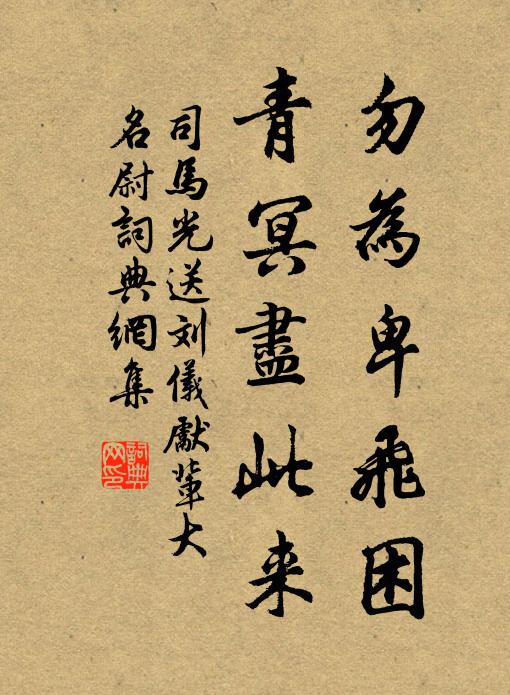 勿為卑飛困
青冥盡此来
司馬光送刘儀獻輦大
名尉詞典網集
詞典网印